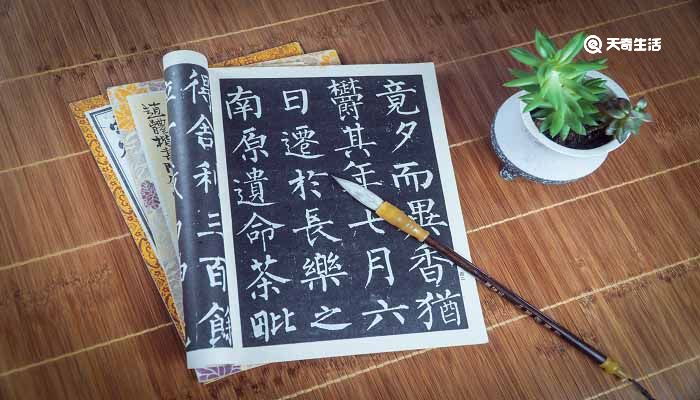 天奇生活
竟夕而異香猶
鬱其年七月六
日遷於長樂之
南原遺命茶毗
得舍利三百餘